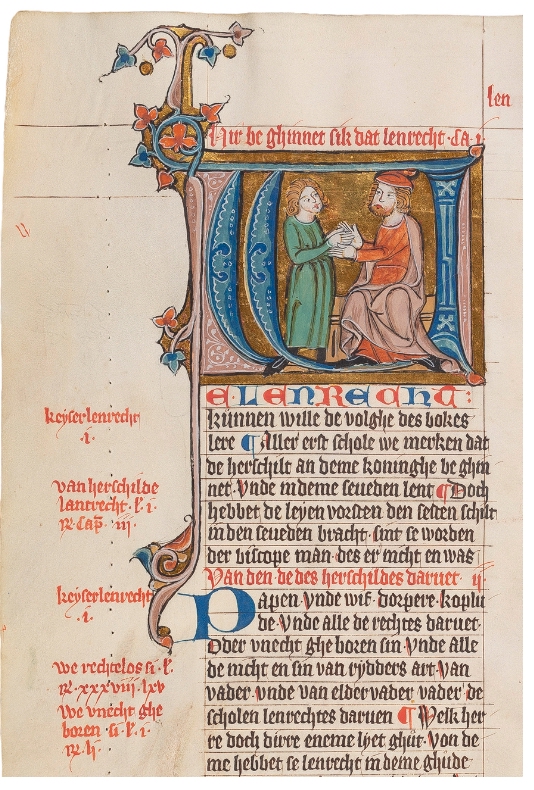 len
Hir be ghinnet sik dat lenrecht · Ca · i
W
E · LENRECHT :
kunnen wille de volghe des bokes
lere ¶ Aller erst schole we merken dat
de herschilt an deme koninghe be ghin
net · Vnde in deme seueden lent ¶ Doch
hebbet de leyen vorsten den sesten schilt
in den seueden bracht · sint se worden
der biscope man · des er nicht en was
Van den de des herschildes daruet · ii ·
Papen · Vnde wif · dorpere · koplu
de · Vnde alle de rechtes daruet ·
Oder vnecht ghe boren sin · Vnde alle
de nicht en sin van rydders art · Van
vader · vnde van elder vader vader · de
scholen lenrechtes daruen ¶ Welk her
re doch dirre eneme lyet ghut · Von de
me hebbet se lenrecht in deme ghude
keyserlenrecht
· i ·
van herschilde
lantrecht · l · i ·
R · Cap · iii ·
keyserlenrecht
· i ·
we rechtelos si · l ·
R · xxxviii · lxv
We vnecht ghe
boren · si · l · i ·
R · li ·